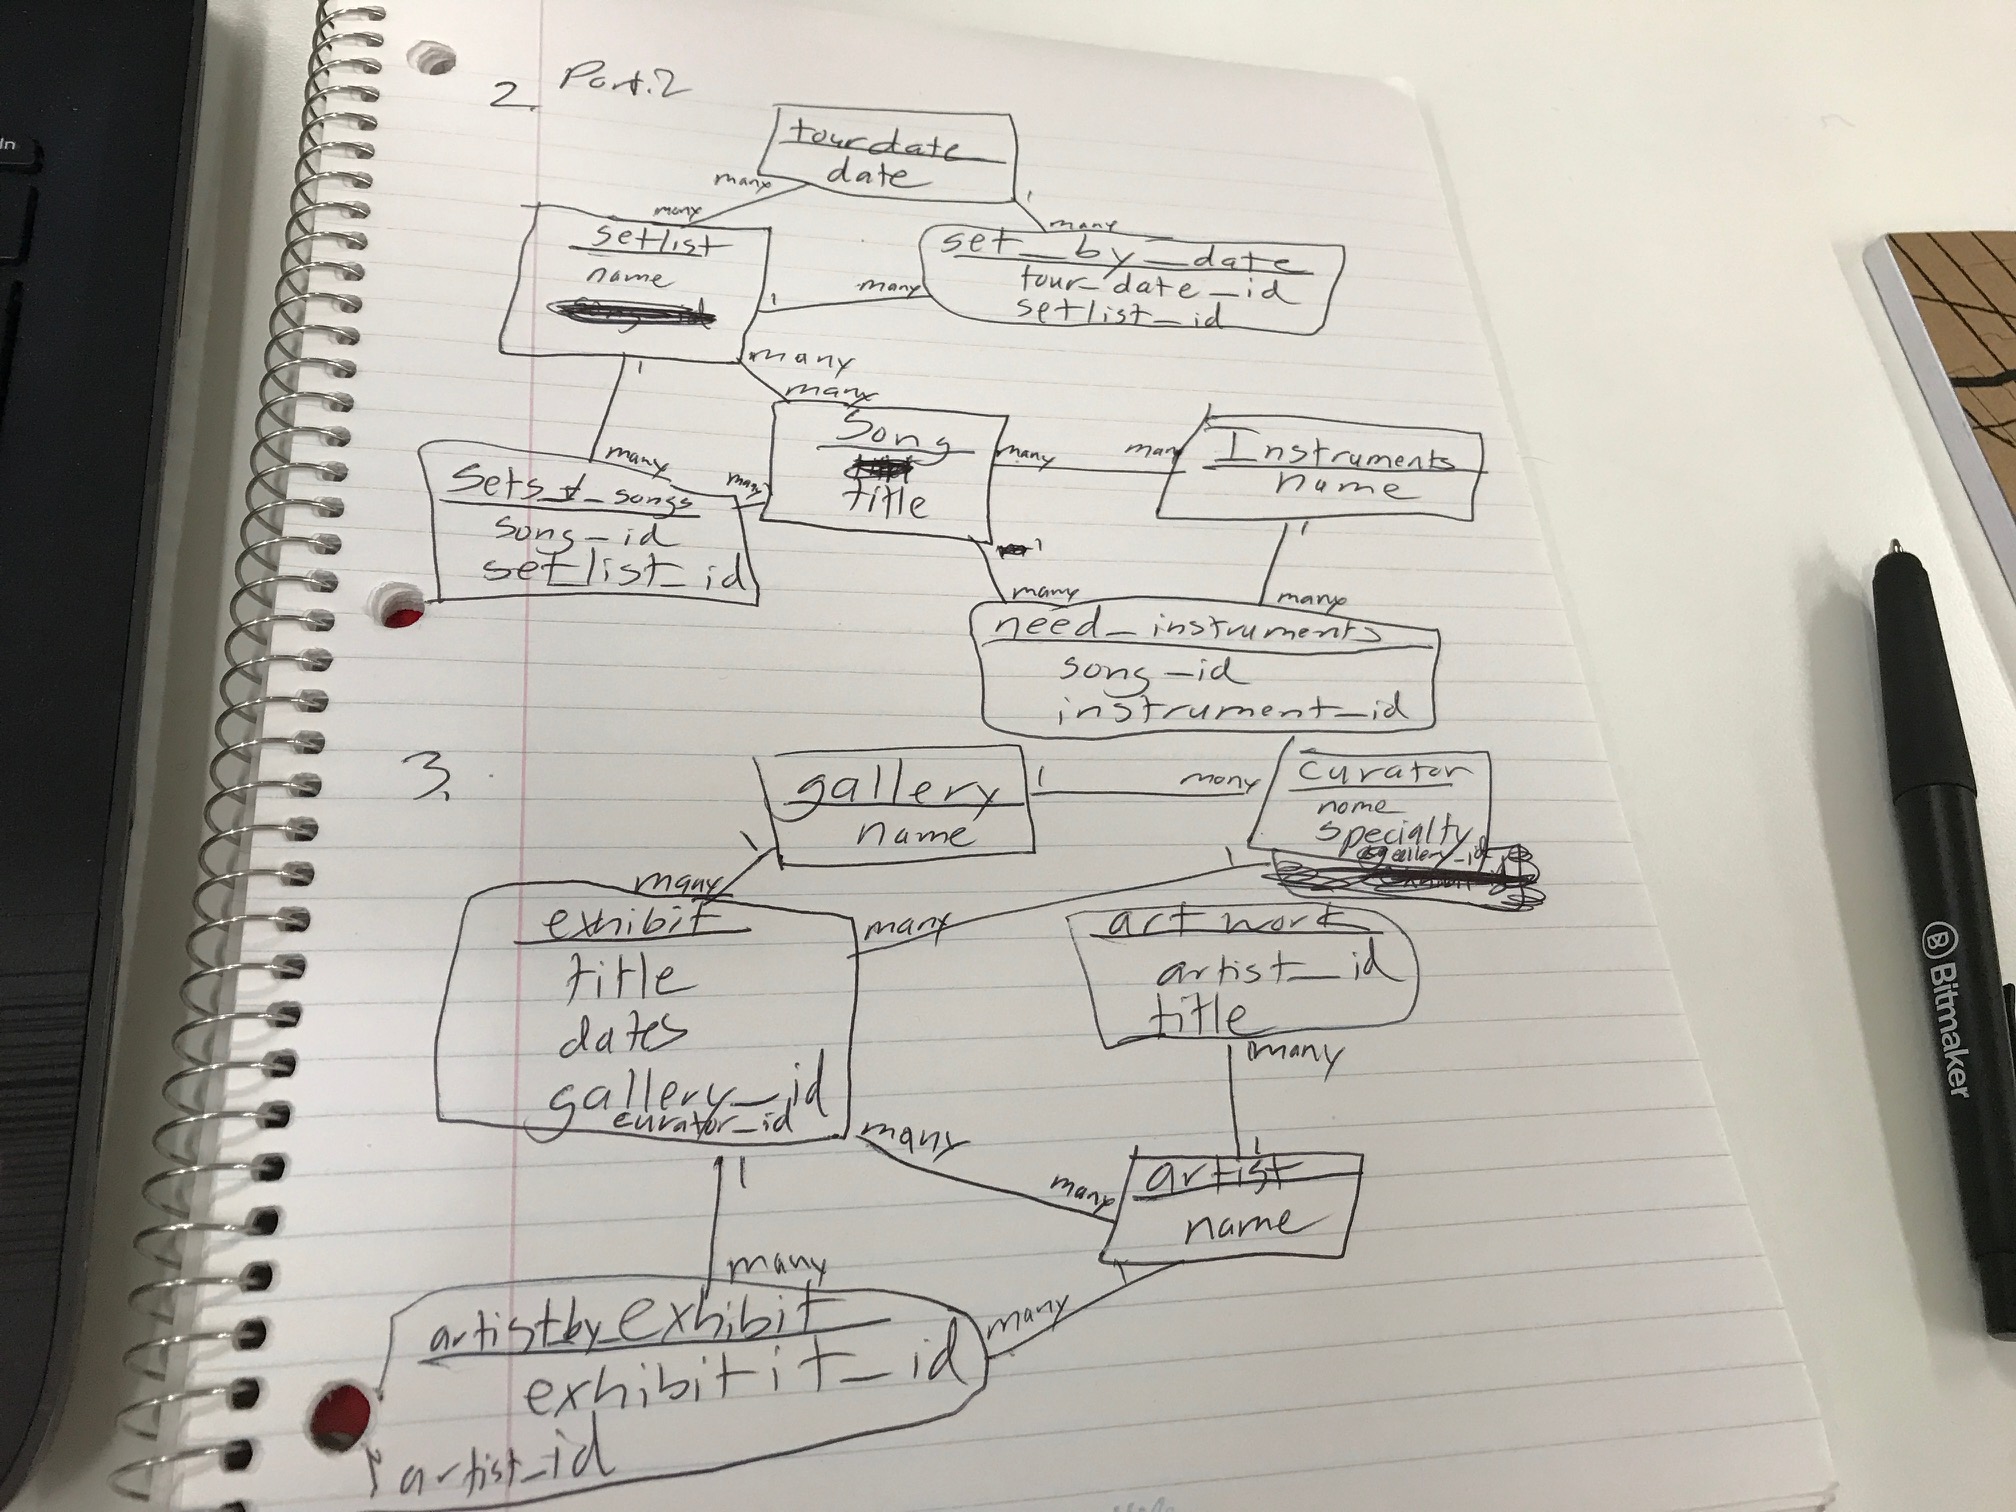 2. Part.2
tourdate
date
many
1
many
many
setlist
name
set_by_date
tour_date_id
setlist_id
1
many
many
1
many
many
Song
title
many
many
Instruments
name
many
Sets_&_songs
song_id
set_list_id
many
1
1
many
many
need_instruments
song_id
instrument_id
3.
gallery
name
1
many
curator
name
specialty
gallery_id
1
many
1
exhibit
title
dates
gallery_id
curator_id
many
art work
artist_id
title
many
1
many
many
artist
name
1
many
1
many
artist_by_exhibit
exhibitit_id
artist_id
In
Bitmaker